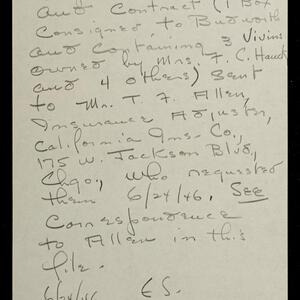 and Contract (1 Box
Consigned to Budworth
and Containing 3 Vivins
owned by Mrs. F. C. Hauck
and 4 others) Sent
to Mr. T. F. Allen,
Insurance Adjuster,
California Ins. Co.,
175 W. Jackson Blvd.,
Chgo., who requested
them 6/24/46. SEE
Correspondence
to Allen in this
file.
6/24/46 ES.